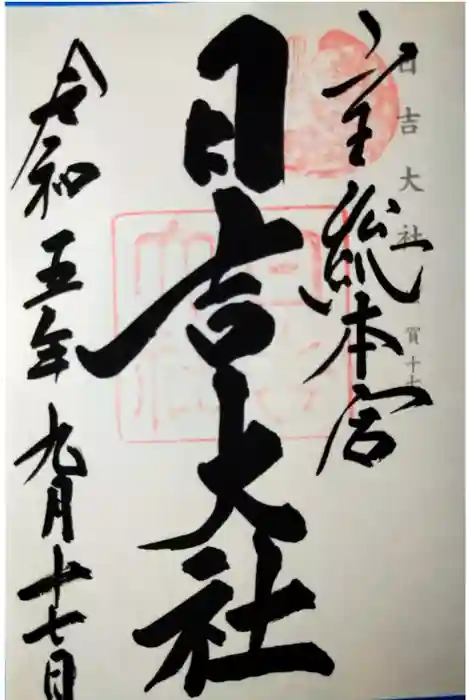 日吉大社 賀十七
山王総本宮
日吉大社
令和五年九月十七日